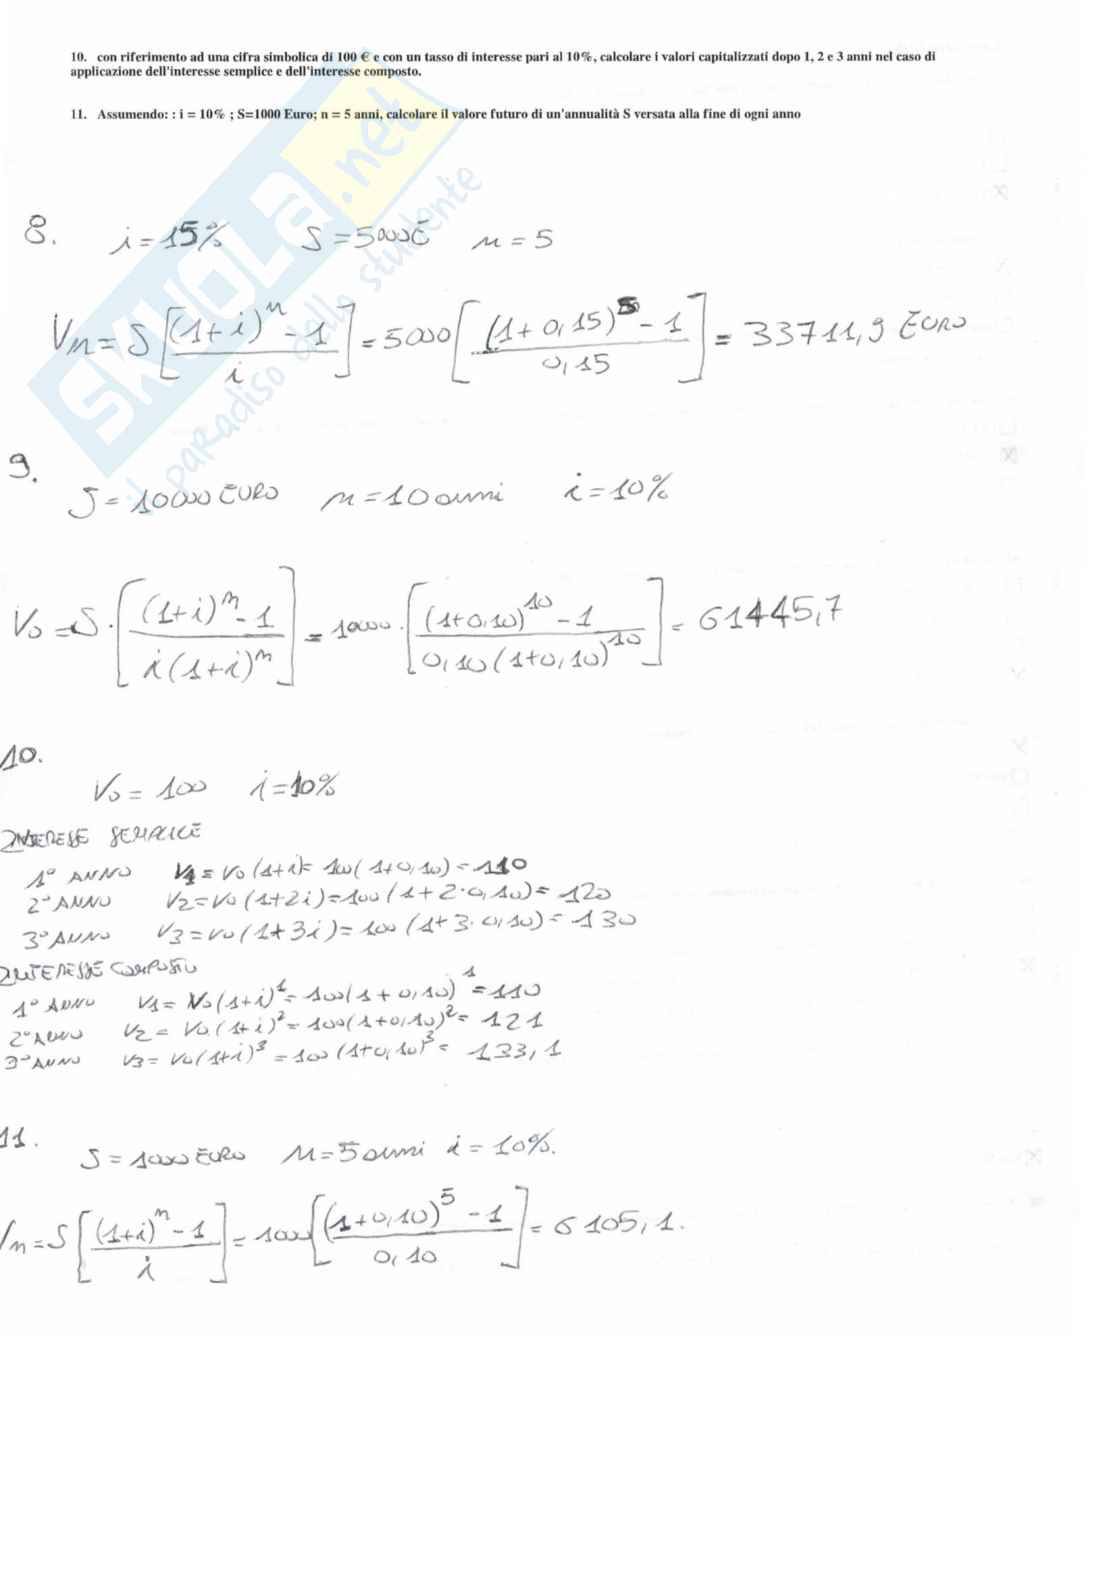 10. con riferimento ad una cifra simbolica di 100 € e con un tasso di interesse pari al 10%, calcolare i valori capitalizzati dopo 1, 2 e 3 anni nel caso di
applicazione dell'interesse semplice e dell'interesse composto.
11. Assumendo: : i = 10% ; S=1000 Euro; n = 5 anni, calcolare il valore futuro di un'annualità S versata alla fine di ogni anno
SKUOLA.net
il paradiso dello studente
8. i = 15% S = 5000€ n = 5
Vn = S [((1+i)^n - 1) / i] = 5000 [((1+0,15)^5 - 1) / 0,15] = 33711,9 EURO
9.
S = 10000 EURO n = 10 anni i = 10%
V0 = S · [((1+i)^n - 1) / (i(1+i)^n)] = 10000 · [((1+0,10)^10 - 1) / (0,10(1+0,10)^10)] = 61445,7
10.
V0 = 100 i = 10%
INTERESSE SEMPLICE
1° ANNO V1 = V0 (1+i) = 100(1+0,10) = 110
2° ANNO V2 = V0 (1+2i) = 100 (1+2·0,10) = 120
3° ANNO V3 = V0 (1+3i) = 100 (1+3·0,10) = 130
INTERESSE COMPOSTO
1° ANNO V1 = V0 (1+i)^1 = 100(1+0,10)^1 = 110
2° ANNO V2 = V0 (1+i)^2 = 100(1+0,10)^2 = 121
3° ANNO V3 = V0 (1+i)^3 = 100 (1+0,10)^3 = 133,1
11.
S = 1000 EURO n = 5 anni i = 10%.
Vn = S [((1+i)^n - 1) / i] = 1000 [((1+0,10)^5 - 1) / 0,10] = 6105,1.